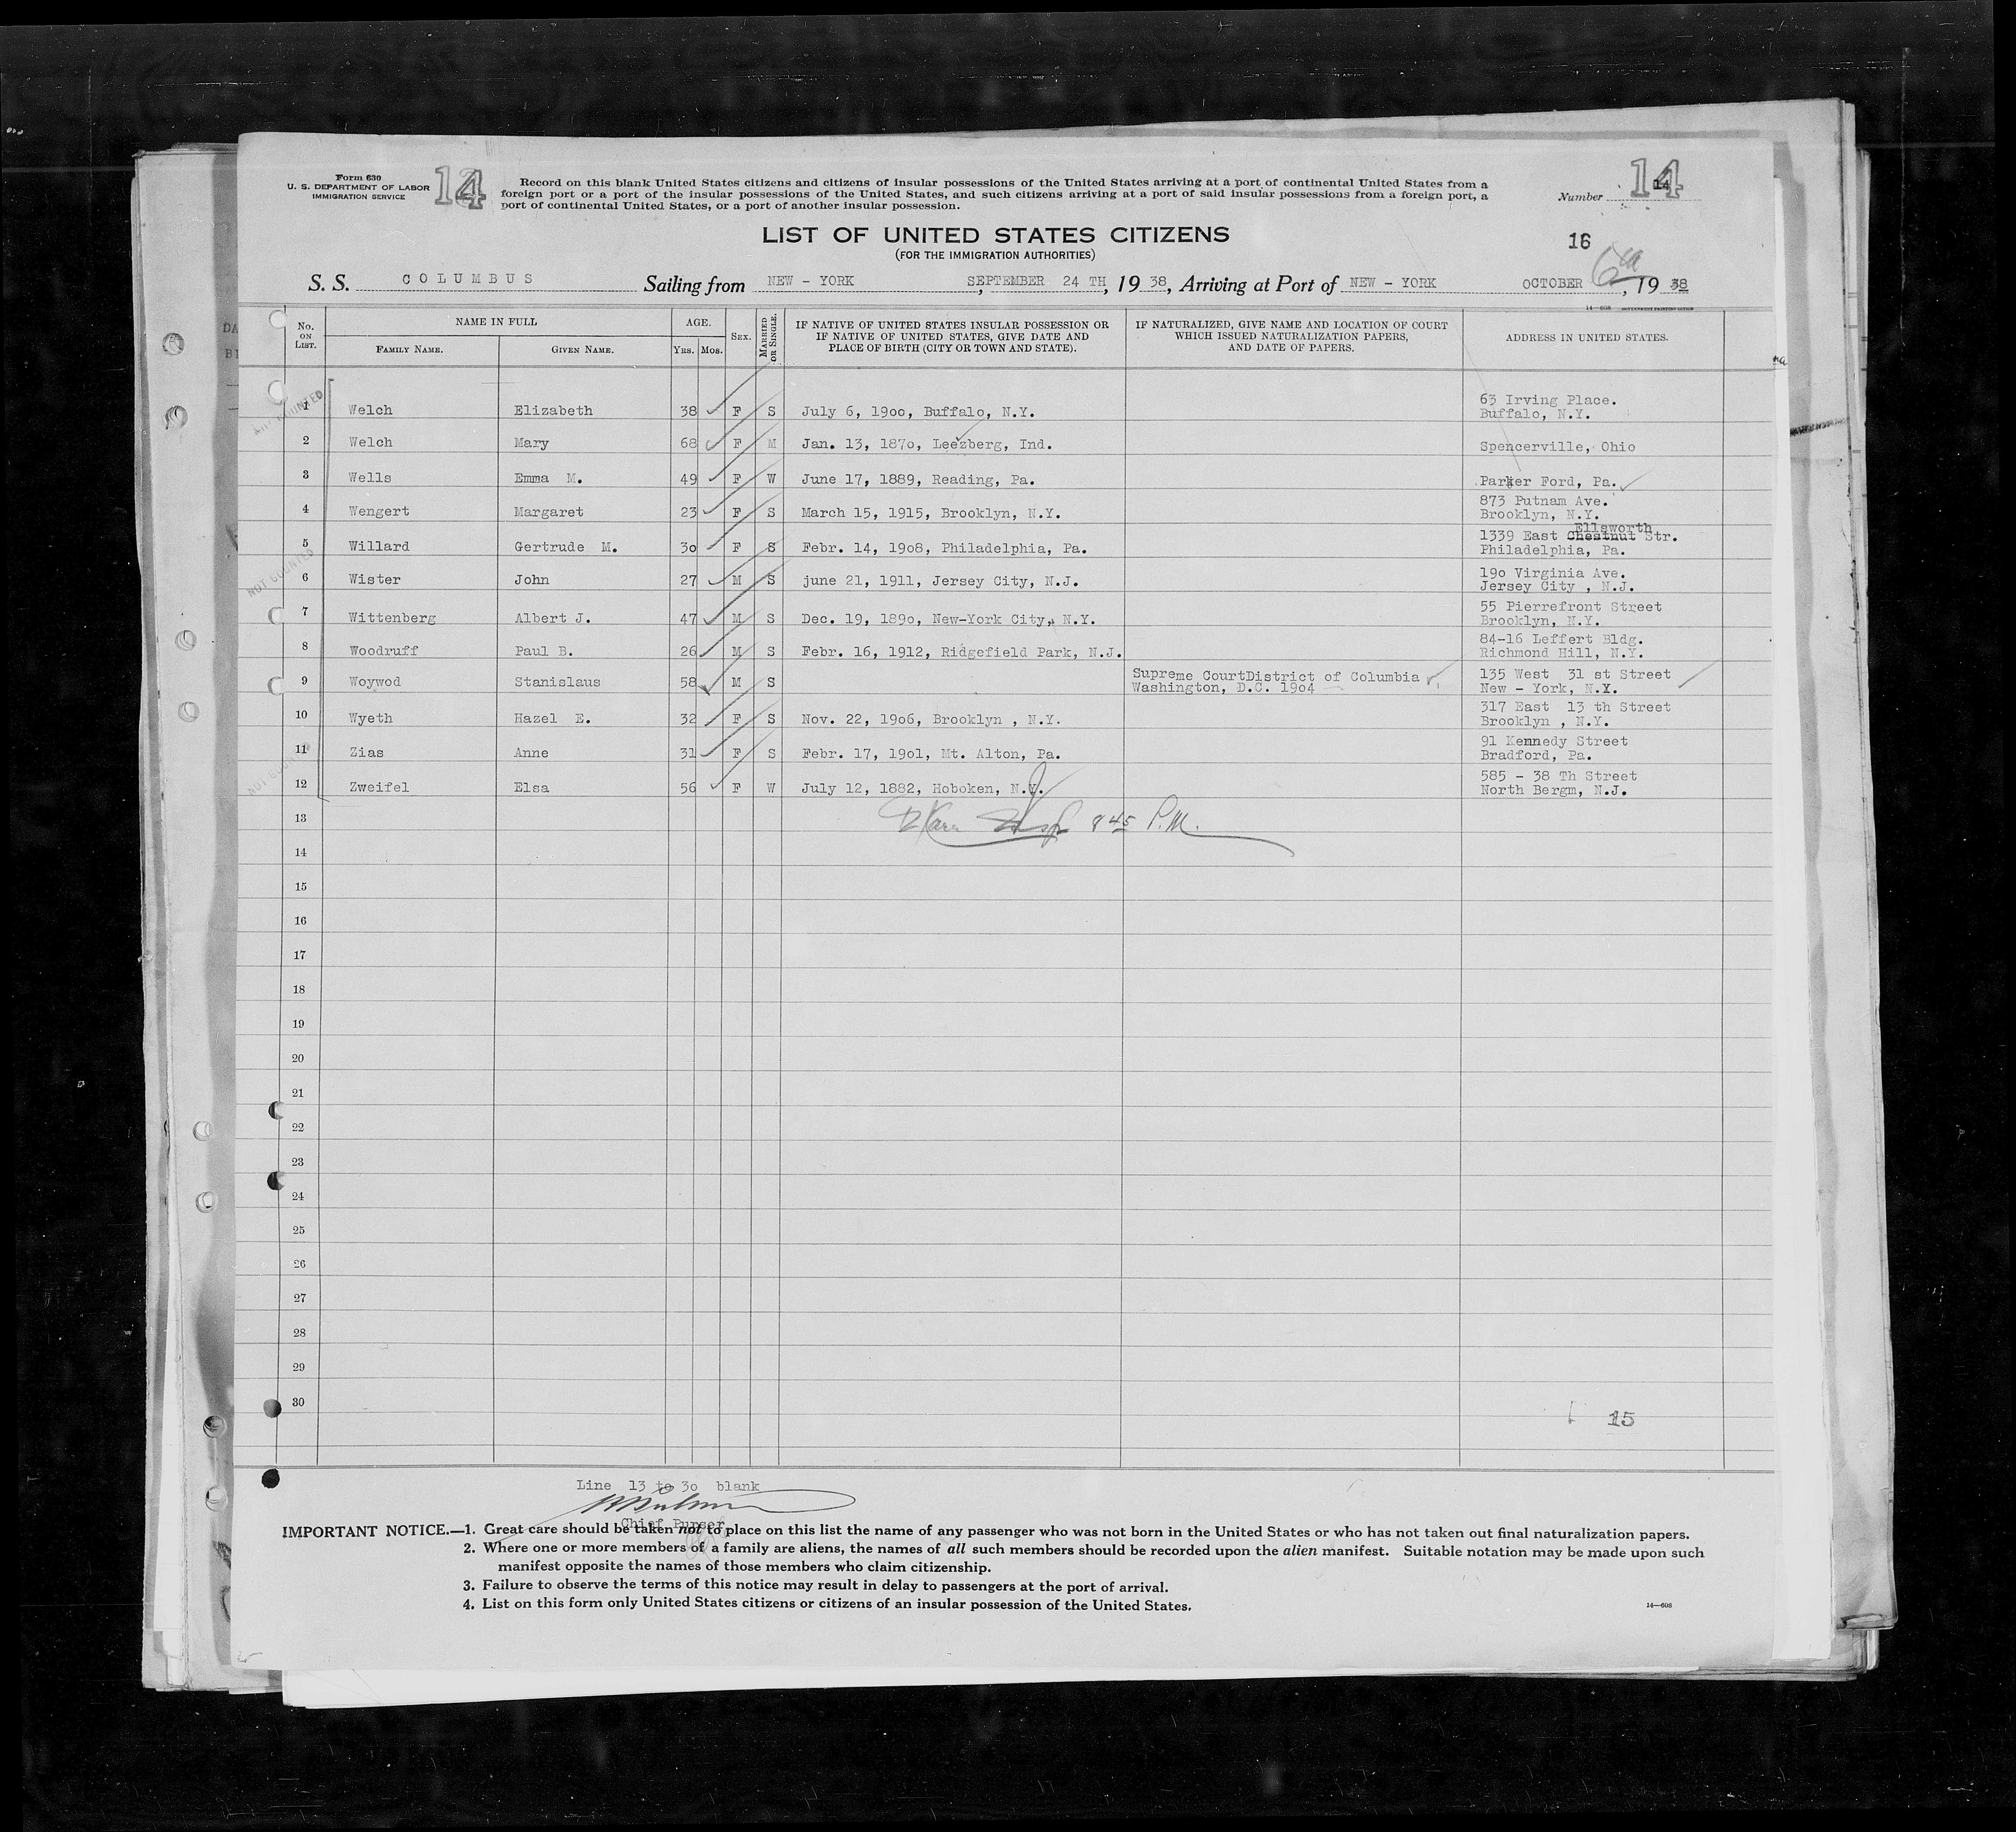 Form 630
U. S. DEPARTMENT OF LABOR
IMMIGRATION SERVICE
14
Record on this blank United States citizens and citizens of insular possessions of the United States arriving at a port of continental United States from a
foreign port or a port of the insular possessions of the United States, and such citizens arriving at a port of said insular possessions from a foreign port, a
port of continental United States, or a port of another insular possession.
Number 14
14
LIST OF UNITED STATES CITIZENS
(FOR THE IMMIGRATION AUTHORITIES)
16
S. S. COLUMBUS Sailing from NEW - YORK, SEPTEMBER 24 TH, 19 38, Arriving at Port of NEW - YORK OCTOBER 6th, 19 38
14—608 GOVERNMENT PRINTING OFFICE
No. ON LIST. NAME IN FULL FAMILY NAME. GIVEN NAME. AGE. YRS. MOS. SEX. MARRIED OR SINGLE. IF NATIVE OF UNITED STATES INSULAR POSSESSION OR IF NATIVE OF UNITED STATES, GIVE DATE AND PLACE OF BIRTH (CITY OR TOWN AND STATE). IF NATURALIZED, GIVE NAME AND LOCATION OF COURT WHICH ISSUED NATURALIZATION PAPERS, AND DATE OF PAPERS. ADDRESS IN UNITED STATES.
1 Welch Elizabeth 38 F S July 6, 19oo, Buffalo, N.Y. 63 Irving Place. Buffalo, N.Y.
2 Welch Mary 68 F M Jan. 13, 187o, Leezberg, Ind. Spencerville, Ohio
3 Wells Emma M. 49 F W June 17, 1889, Reading, Pa. Parker Ford, Pa.
4 Wengert Margaret 23 F S March 15, 1915, Brooklyn, N.Y. 873 Putnam Ave. Brooklyn, N.Y.
5 Willard Gertrude M. 3o F S Febr. 14, 19o8, Philadelphia, Pa. 1339 East Chestnut Ellsworth Str. Philadelphia, Pa.
6 Wister John 27 M S june 21, 1911, Jersey City, N.J. 19o Virginia Ave. Jersey City , N.J.
7 Wittenberg Albert J. 47 M S Dec. 19, 189o, New-York City, N.Y. 55 Pierrefront Street Brooklyn, N.Y.
8 Woodruff Paul B. 26 M S Febr. 16, 1912, Ridgefield Park, N.J. 84-16 Leffert Bldg. Richmond Hill, N.Y.
9 Woywod Stanislaus 58 M S Supreme CourtDistrict of Columbia Washington, D.C. 19o4 135 West 31 st Street New - York, N.Y.
10 Wyeth Hazel E. 32 F S Nov. 22, 19o6, Brooklyn , N.Y. 317 East 13 th Street Brooklyn , N.Y.
11 Zias Anne 31 F S Febr. 17, 19o1, Mt. Alton, Pa. 91 Kennedy Street Bradford, Pa.
12 Zweifel Elsa 56 F W July 12, 1882, Hoboken, N.J. 585 - 38 Th Street North Bergm, N.J.
NOT COUNTED
NOT COUNTED
NOT COUNTED
13 8 45 P.M.
14
15
16
17
18
19
20
21
22
23
24
25
26
27
28
29
30
15
Line 13 to 3o blank
Chief Purser
IMPORTANT NOTICE.—1. Great care should be taken not to place on this list the name of any passenger who was not born in the United States or who has not taken out final naturalization papers.
2. Where one or more members of a family are aliens, the names of all such members should be recorded upon the alien manifest. Suitable notation may be made upon such
manifest opposite the names of those members who claim citizenship.
3. Failure to observe the terms of this notice may result in delay to passengers at the port of arrival.
4. List on this form only United States citizens or citizens of an insular possession of the United States.
14—608